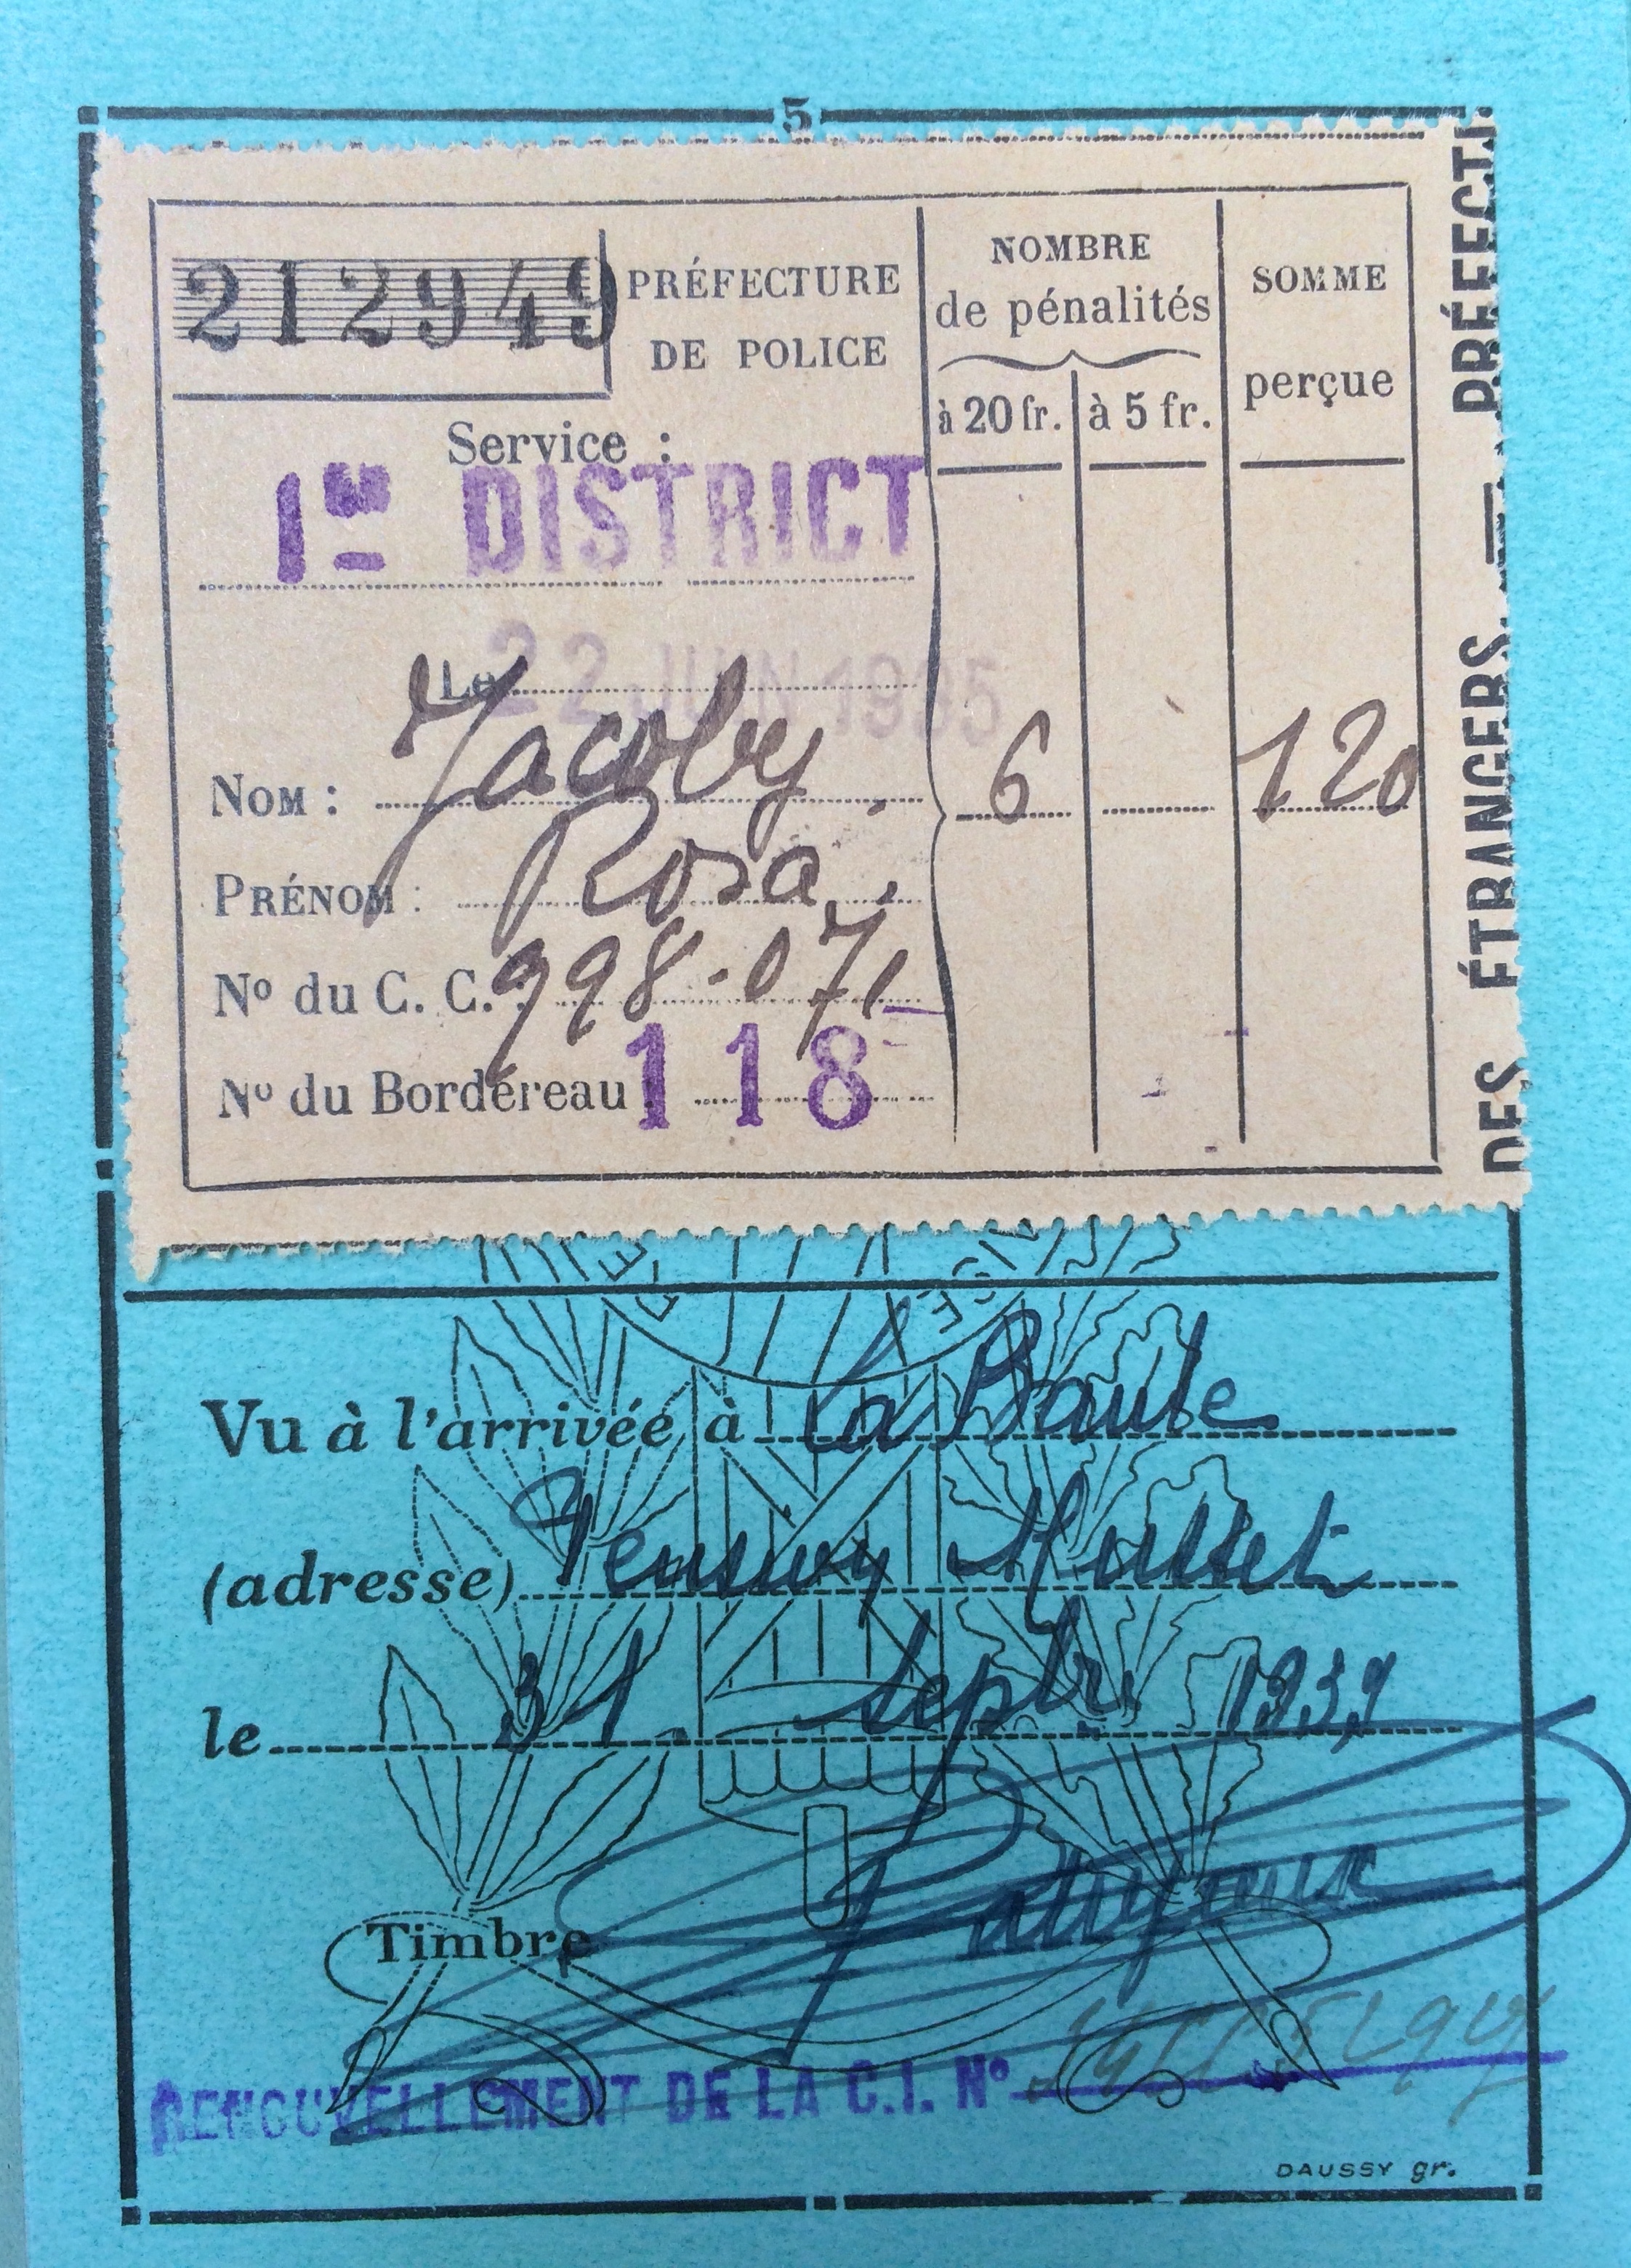 5
212949
PRÉFECTURE
DE POLICE
NOMBRE
de pénalités
SOMME
perçue
à 20 fr.
à 5 fr.
Service :
1er DISTRICT
Le 22 JUIN 1935
Nom : Jacoby
6
120
Prénom : Rosa
No du C. C. : 998.071
No du Bordereau : 118
DES ÉTRANGERS. — PRÉFECT
Vu à l'arrivée à La Baule
(adresse) Musset
le 31 Septr. 1939
Timbre
RENOUVELLEMENT DE LA C.I. No
DAUSSY gr.